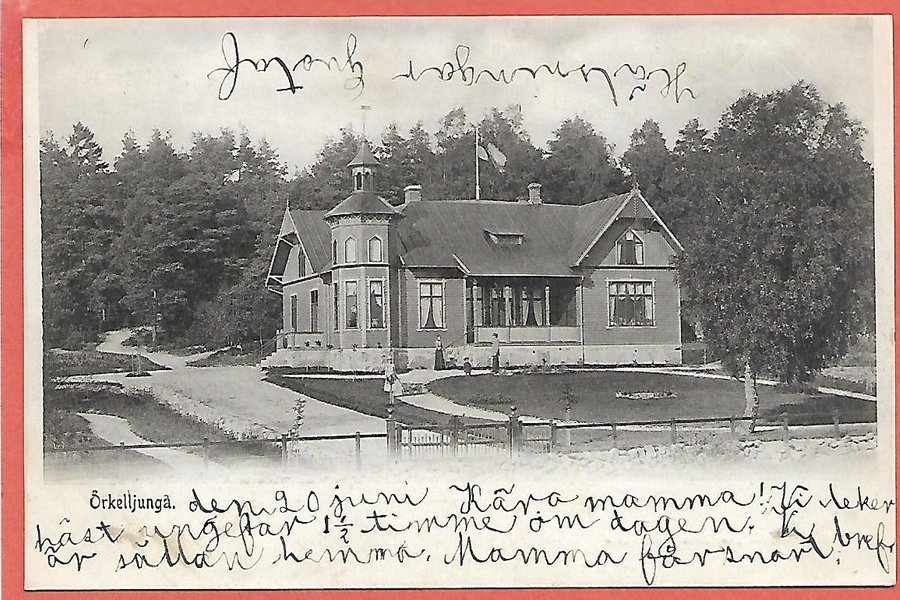 Hälsningar
Örkelljunga. den 20 juni Kära mamma! Vi leker
häst ungefär 1 1/2 timme om dagen. Vi
är sällan hemma. Mamma får snart bref.